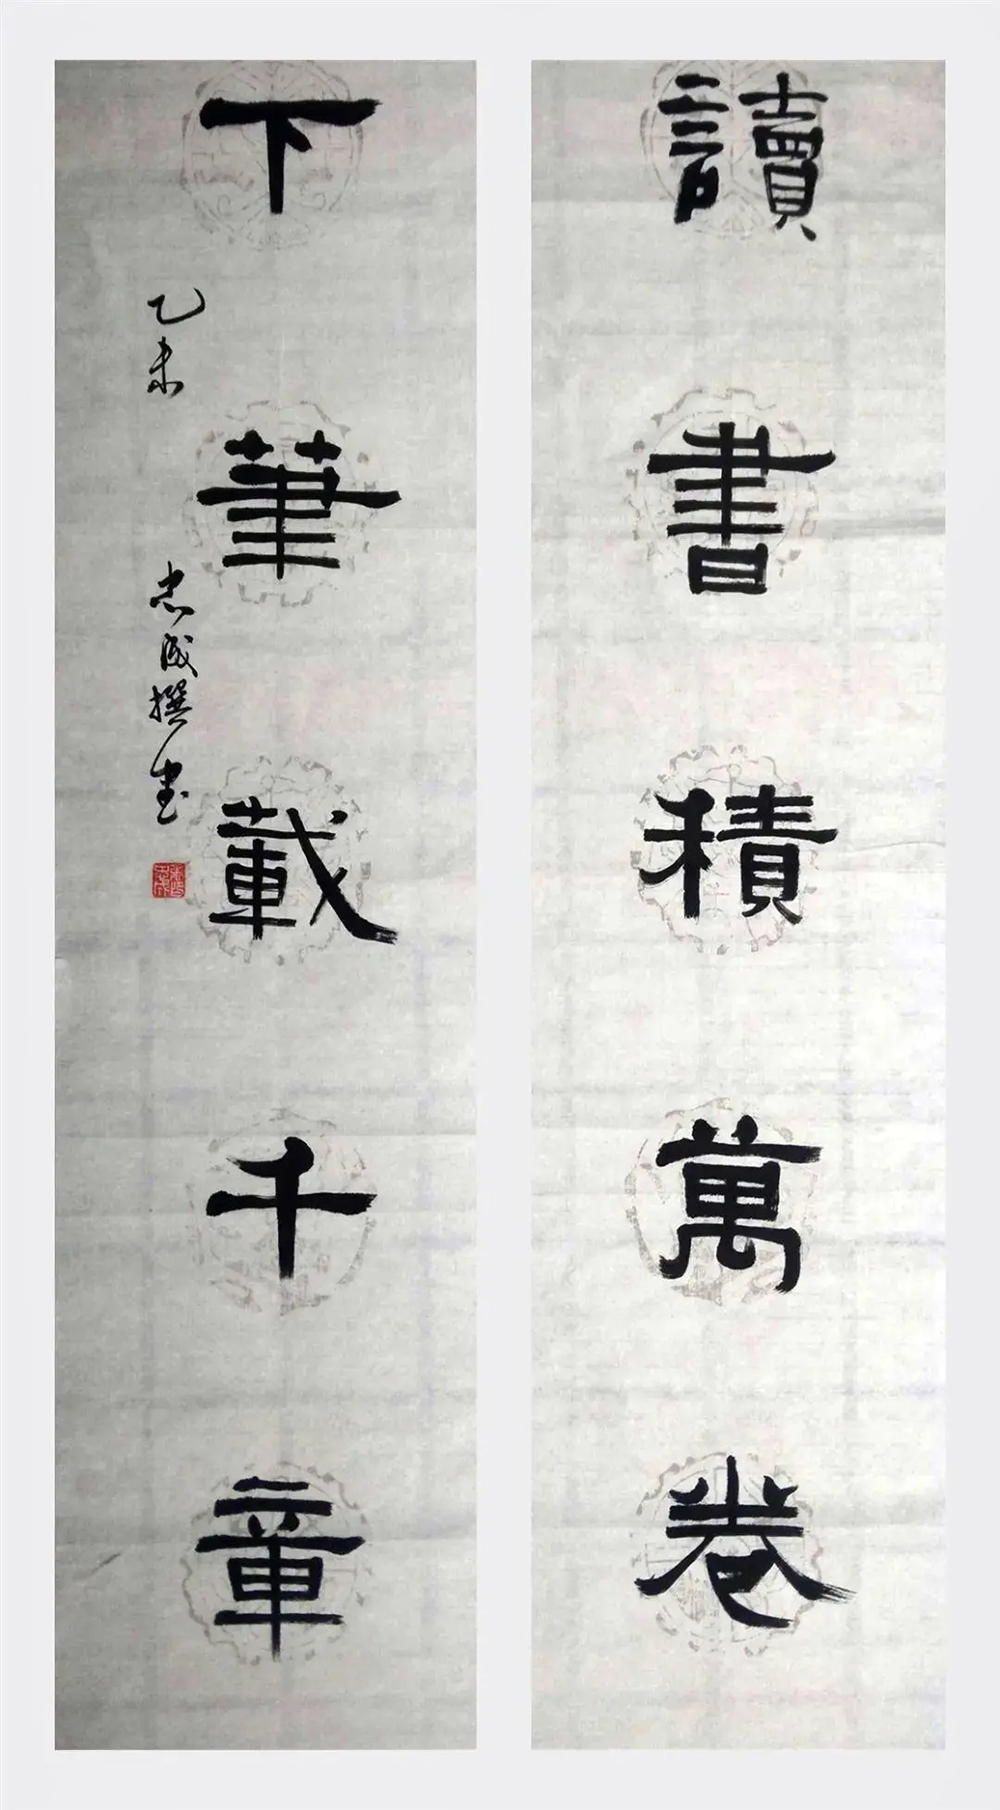 讀書積萬卷
下筆載千章
乙未 忠成撰書